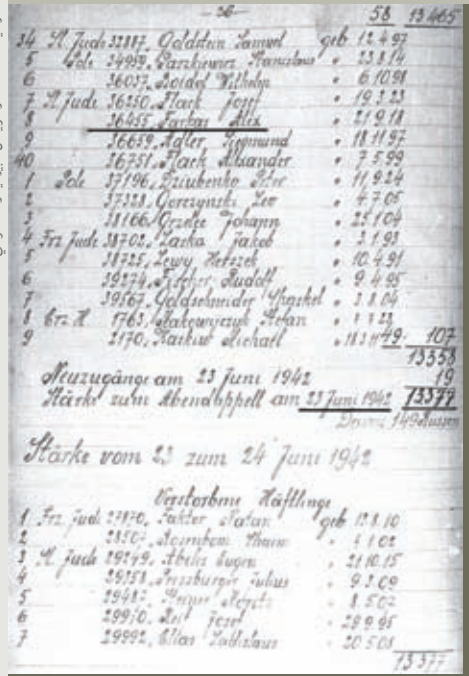 - 36 - 58 13465
34 Sl. Jude 32887, Goldstein Samuel geb 12 4 97
5 Pole 34959, Paszkiewicz Stanislaus " 23 8 14
6 36037, Boidol Wilhelm " 6 10 98
7 Sl. Jude 36250, Flack Josef " 19 3 23
8 36455, Farkas Alex " 21 9 18
9 36659, Adler Siegmund " 18 11 97
40 36751, Flack Alexander " 7 5 99
1 Pole 37196, Dziubenko Peter " 11 9 24
2 37328, Gorczynski Leo " 4 7 05
3 38166, Johann " 25 1 04
4 Frz Jude 38702, Laska Jakob " 3 1 93
5 38725, Lewy " 10 4 91
6 39274, Fischer Rudolf " 9 4 95
7 39567, Goldschneider " 3 8 04
8 Erz. H 1763, Stefan "
9 2170, Michael " 49 107
13358
Neuzugänge am 23 Juni 1942 19
Stärke zum Abendappell am 23 Juni 1942 13377
Davon 149 Russen
Stärke vom 23 zum 24 Juni 1942
Verstorbene Häftlinge
1 Frz. Jude 27870, Fakter Natan geb 12 8 10
2 28507, Rosenbom " 4 1 02
3 Sl. Jude 29249, Abeles Eugen " 21 10 15
4 29358, Pressburger Julius " 9 3 09
5 29487, Steiner Moritz " 8 5 02
6 29970, Reif Josef " 29 9 95
7 29992, Ladislaus " 20 5 08
13377